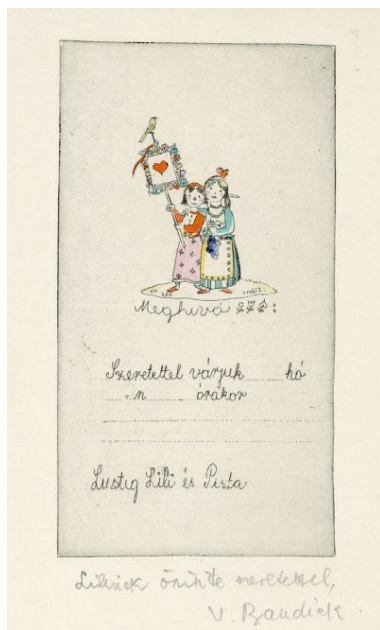 Meghivó
Szeretettel várjuk ........ hó
......-n ........ órakor
Lustig Lili és Piszta
Lilinek őszinte szeretettel,
V.